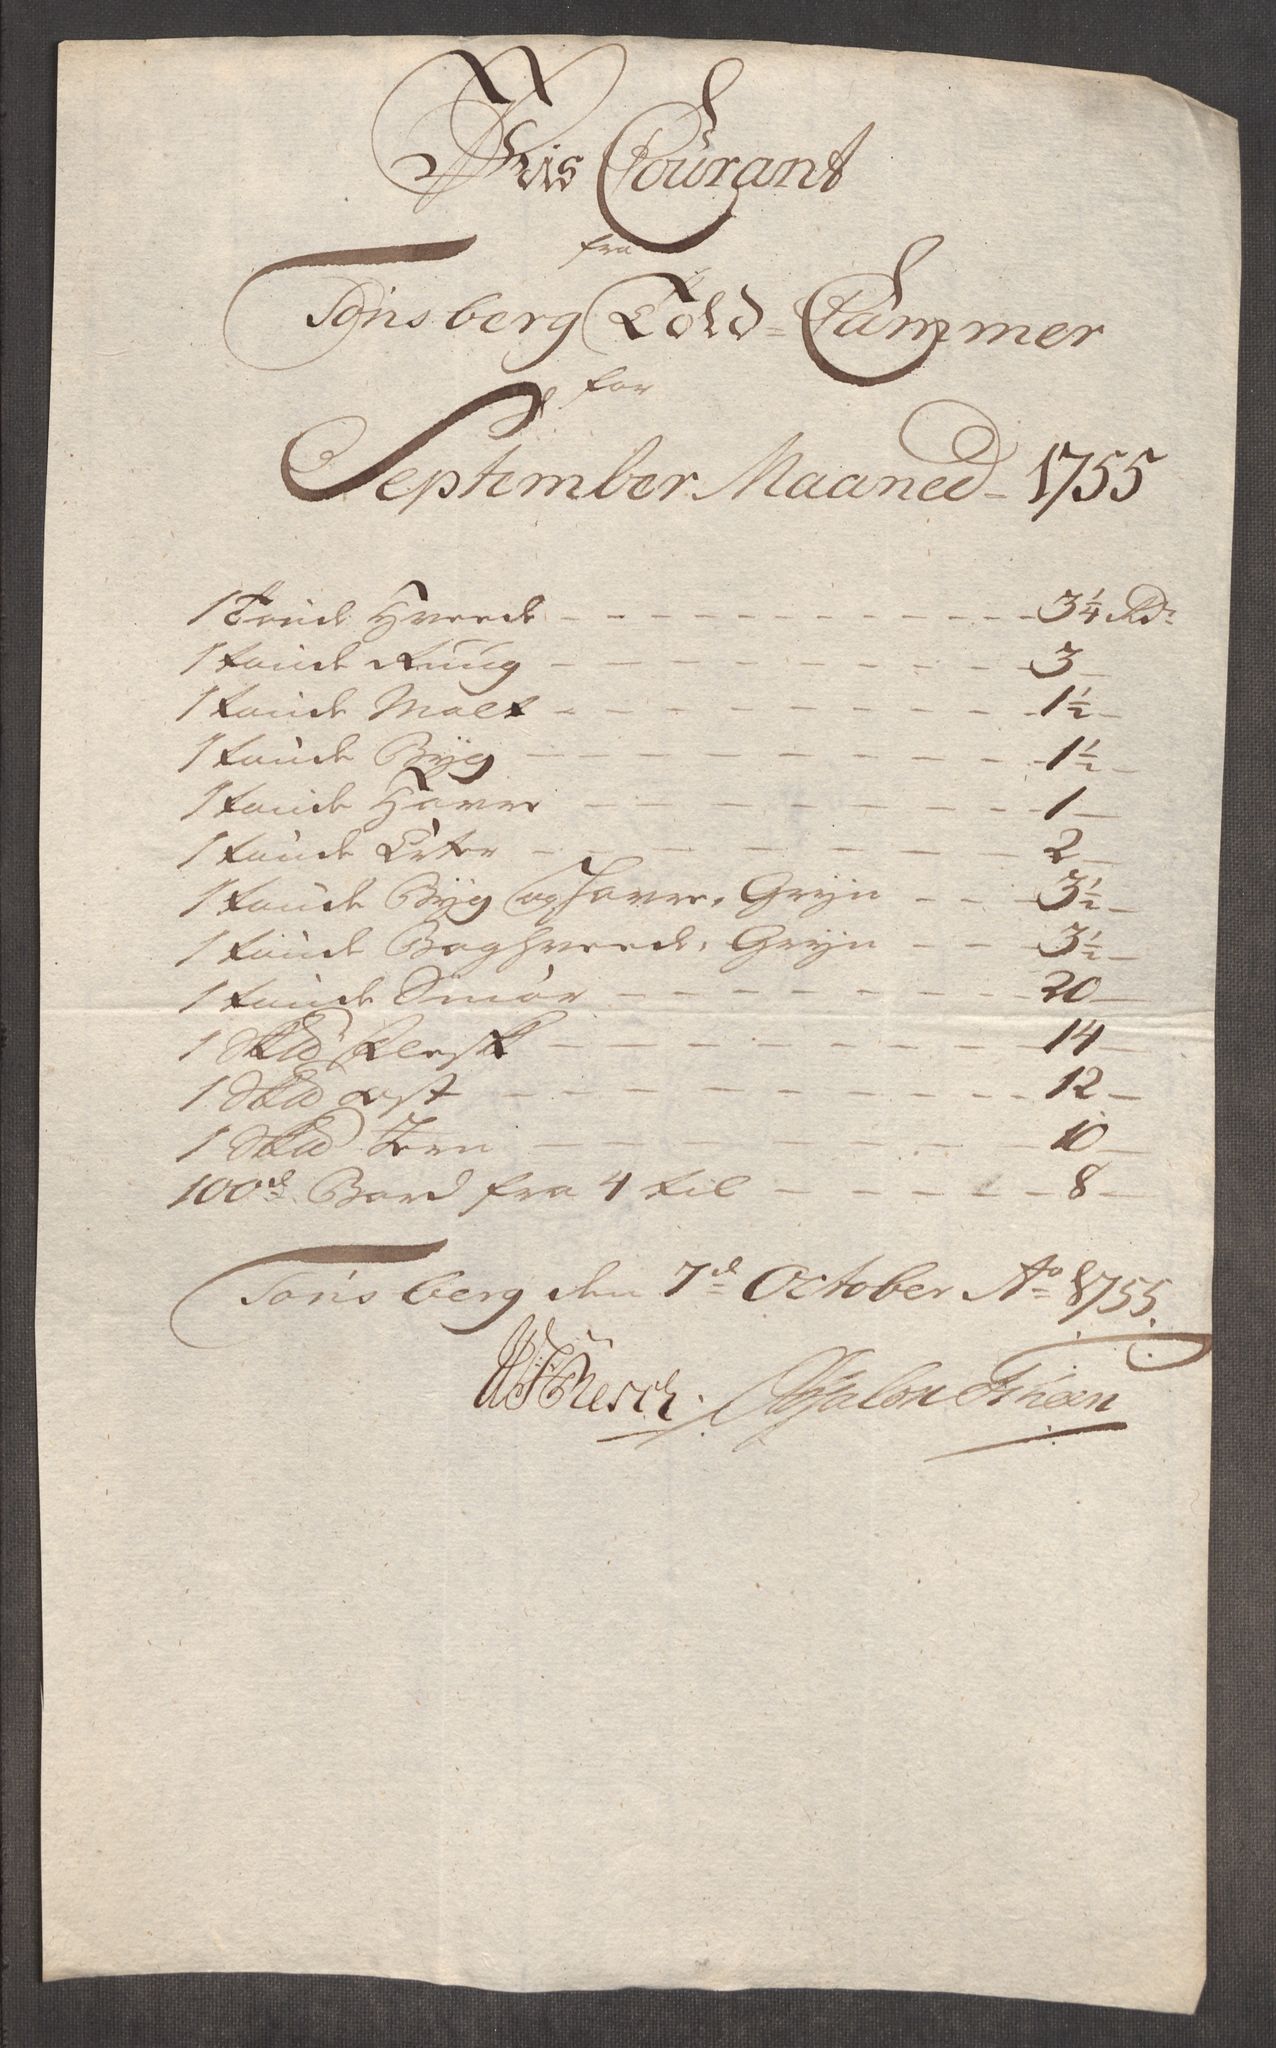 Pris Courant
fra
Tönsberg Told-Cammer
for
September Maaned - 1755
1 Tønde Hveede - 3 1/4 Rd:
1 tøndeRuug - 3 -
1 tønde Malt - 1 1/2 -
1 tønde Byg - 1 1/2 -
1 tønde Havre - 1 -
1 tønde Erter - 2 -
1 tønde Byg og Havre, Gryn - 3 1/2 -
1 tønde Boghveede, Gryn - 3 1/2 -
1 tønde Smør - 20 -
1 Skd Flesk - 14 -
1 Skd Ost - 12 -
1 Skd Jern - 10 -
100d Bord fra 4 til - 8 -
Tönsberg den 7d October Ao 1755.
Resch.